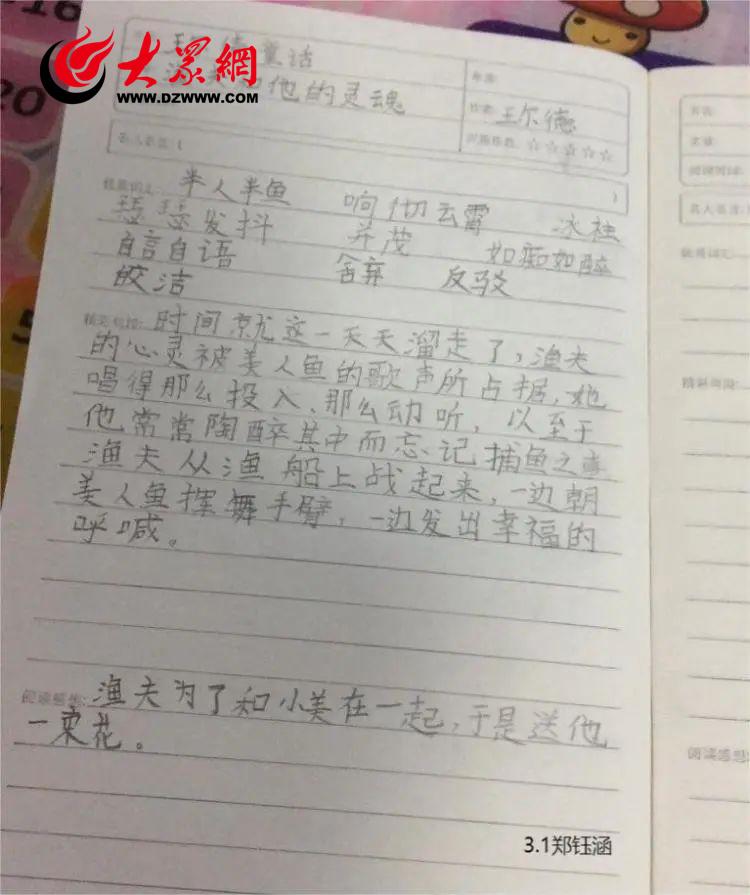 大众網
WWW.DZWWW.COM
童话
他的灵魂
王尔德
☆☆☆☆☆
半人半鱼 响彻云霄 冰柱
瑟瑟发抖 并茂
自言自语 如痴如醉
皎洁 舍弃 反驳
时间就这一天天溜走了,渔夫
的心灵被美人鱼的歌声所占据,她
唱得那么投入、那么动听,以至于
他常常陶醉其中而忘记捕鱼之事
渔夫从渔船上战起来,一边朝
美人鱼挥舞手臂,一边发出幸福的
呼喊。
阅读感想:渔夫为了和小美在一起,于是送他
一束花。
3.1郑钰涵
阅读感想: